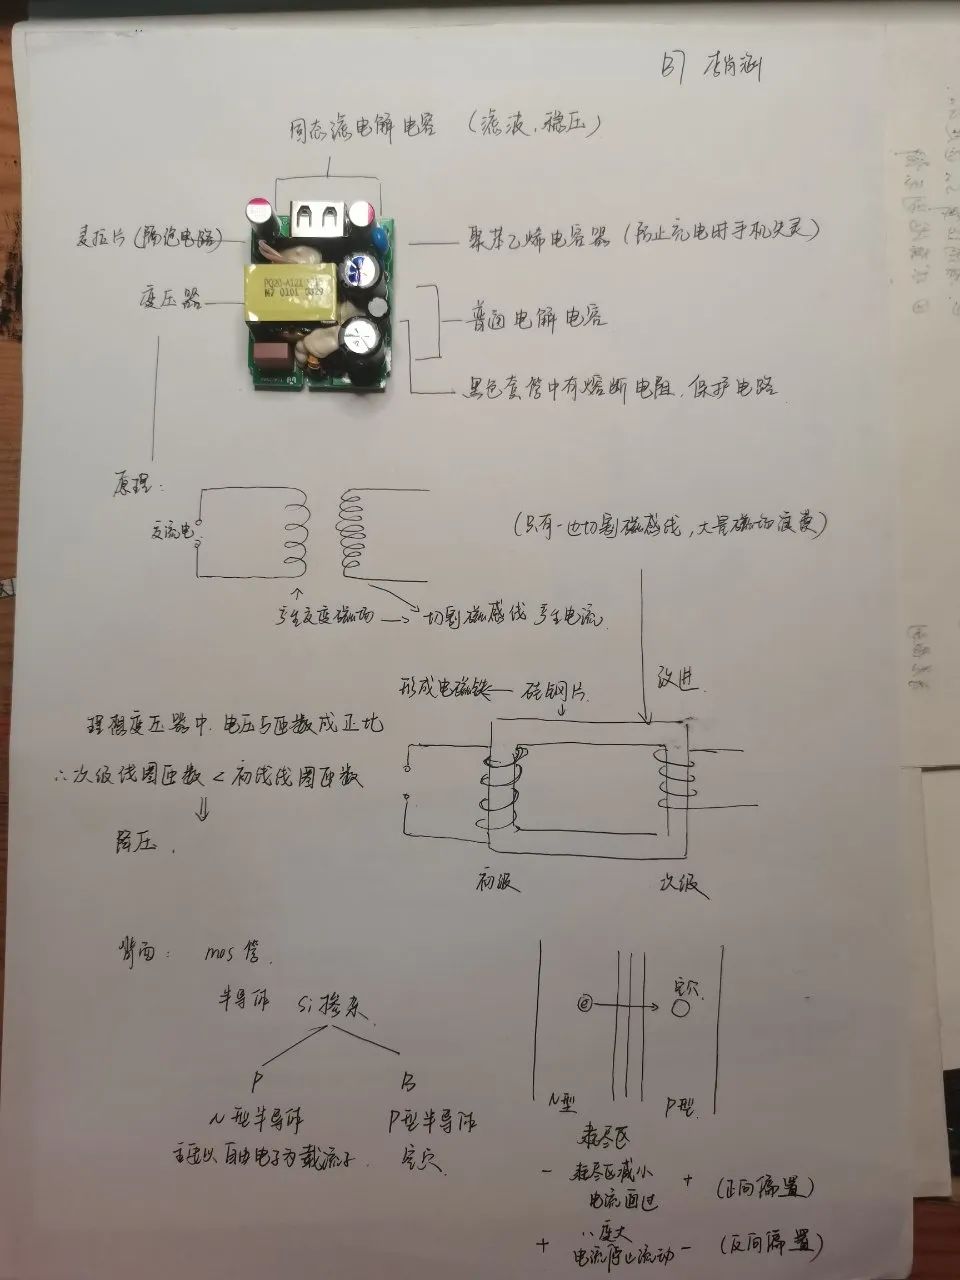 B7 李肖涵
固态滤电解电容 (滤波、稳压)
麦拉片 (隔绝电路)
聚苯乙烯电容器 (防止充电时手机失灵)
变压器
PQ20-A121
普通电解电容
黑色套管中有熔断电阻、保护电路
原理:
交流电
(只有一边切割磁感线,大量磁场浪费)
产生交变磁场 → 切割磁感线 产生电流
形成电磁铁 ← 硅钢片
改进
理想变压器中,电压与匝数成正比
∴次级线圈匝数 < 初级线圈匝数
⇓
降压.
初级
次级
背面: mos管.
半导体 Si掺杂
e
空穴
P B
N型半导体 P型半导体
主要以自由电子为载流子. 空穴
N型 P型
耗尽区
- 耗尽区减小 + (正向偏置)
电流通过
+ 变大 - (反向偏置)
电流停止流动